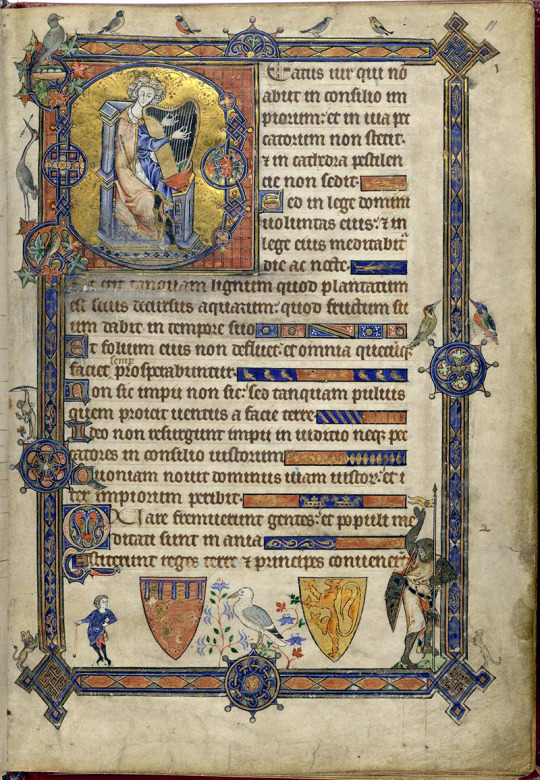 Eatus uir qui nō
abiit in consilio im
piorum: et in uia pec
catorum non stetit.
⁊ in cathedra pestilen
cie non sedit.
Sed in lege domini
uoluntas eius: ⁊ in
lege eius meditabit᷑
die ac nocte.
Et erit tanquam lignum quod plantatum
est secus decursus aquarum: quod fructum su
um dabit in tempore suo
Et folium eius non defluet: et omnia quecūq;
semp
faciet prosperabuntur.
Non sic impii non sic: sed tanquam puluis
quem proicit uentus a facie terre
Ideo non resurgunt impii in iuditio neq; pec
catores in consilio iustorum
Quoniam nouit dominus uiam iustor: et i
ter impiorum peribit.
Quare fremuerunt gentes: et populi me
ditati sunt in ania
Astiterunt reges terre ⁊ principes conuener̄t